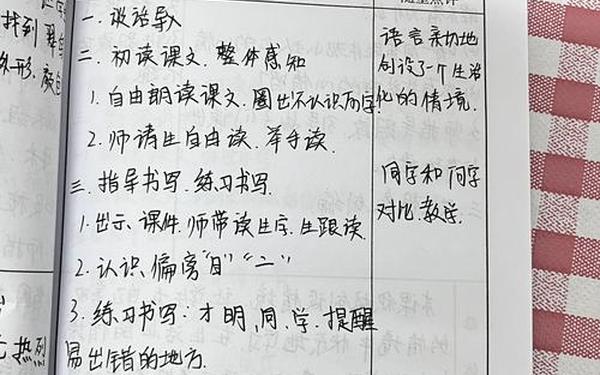 随堂点评
找到
外形、颜色
一、谈话导入
二、初读课文、整体感知
1. 自由朗读课文、圈出不认识的字
2. 师请生自由读、举手读.
三、指导书写、练习书写.
1. 出示、课件.师带读生字.生跟读.
2. 认识偏旁"日""二"
3. 练习书写:才明、同、学.提醒
易出错的地方.
语言亲切地
创设了一个生活
化的情境.
同字和何字
对比教学.
热烈